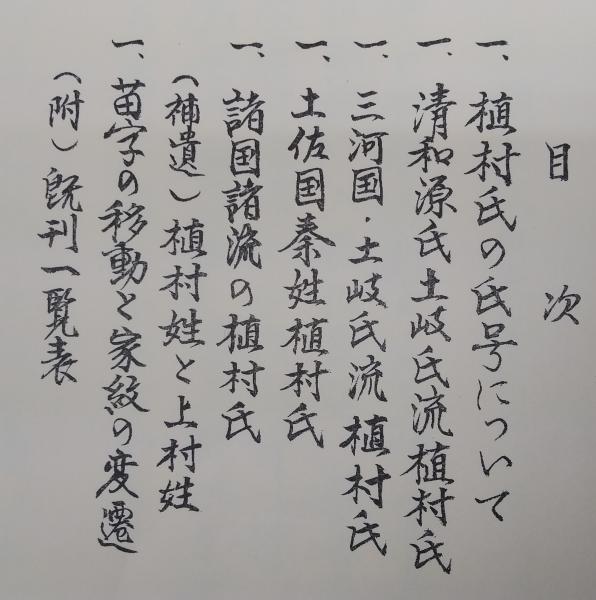 目次
一、植村氏の氏号について
一、清和源氏土岐氏流植村氏
一、三河国・土岐氏流植村氏
一、土佐国秦姓植村氏
一、諸国諸流の植村氏
(補遺)植村姓と上村姓
一、苗字の移動と家紋の変遷
(附)既刊一覧表